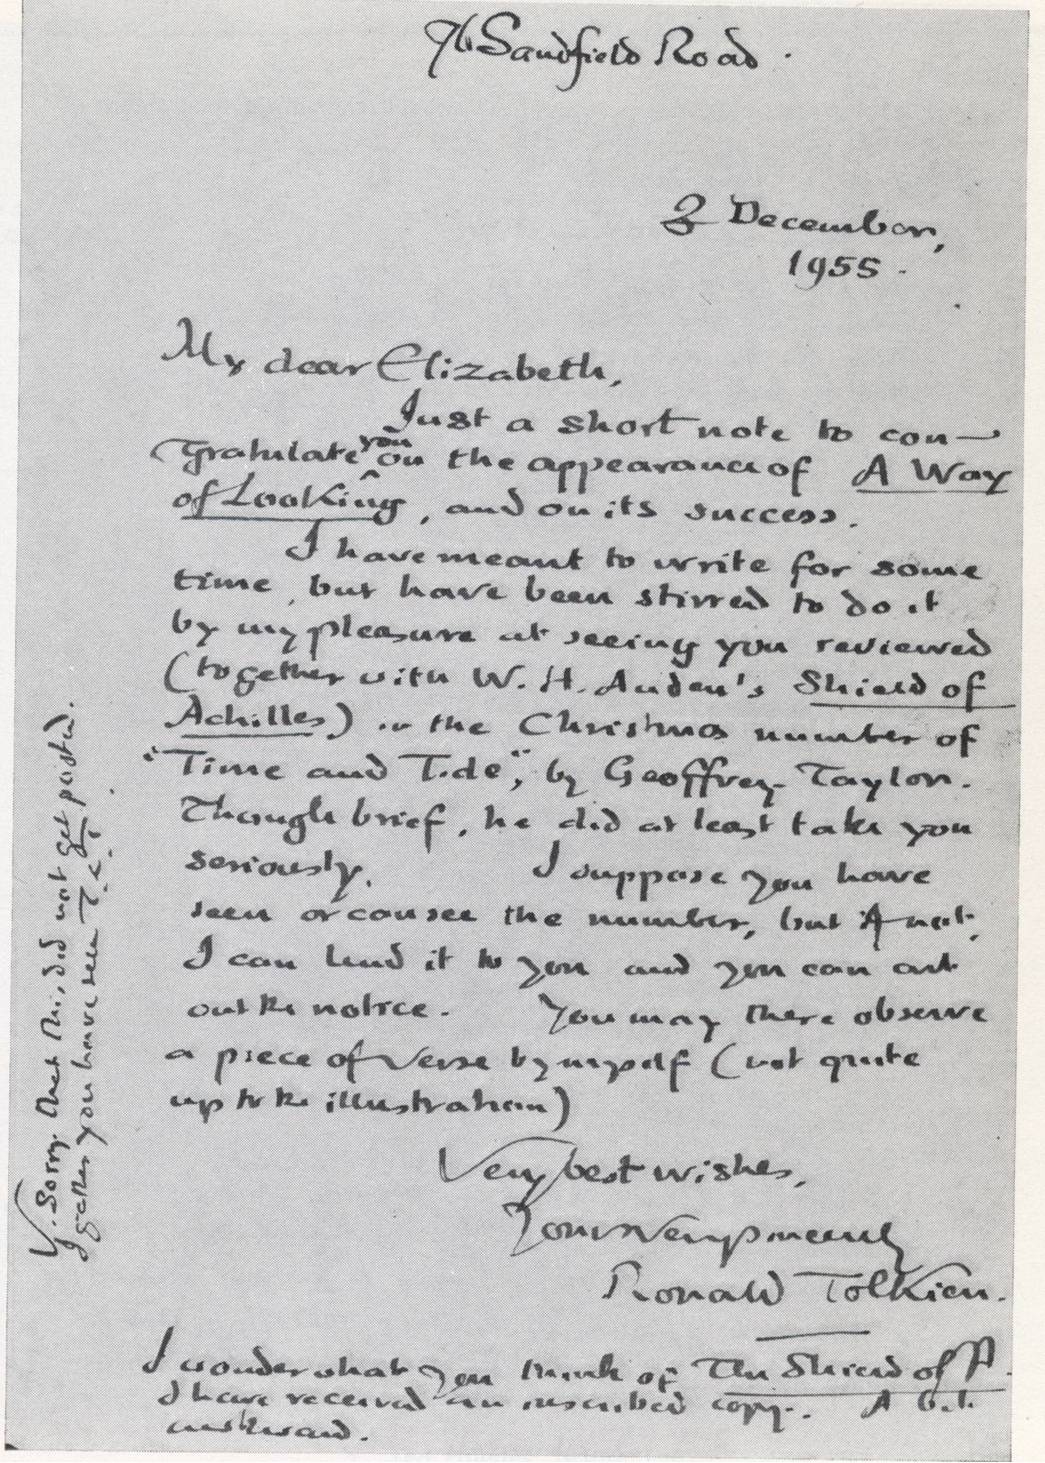 76 Sandfield Road.
2 December,
1955.
My dear Elizabeth,
Just a short note to con-
gratulate you on the appearance of A Way
of Looking, and on its success.
I have meant to write for some
time, but have been stirred to do it
by my pleasure at seeing you reviewed
(together with W. H. Auden's Shield of
Achilles) in the Christmas number of
"Time and Tide", by Geoffrey Taylor.
Though brief, he did at least take you
seriously. I suppose you have
seen or can see the number, but if not,
I can lend it to you and you can cut
out the notice. You may there observe
a piece of verse by myself (not quite
up to the illustration)
Very best wishes,
Yours very sincerely
Ronald Tolkien.
I wonder what you think of The Shield of A.
I have received an inscribed copy. A bit
awkward.
V. Sorry that this did not get posted.
I gather you have seen T & T.